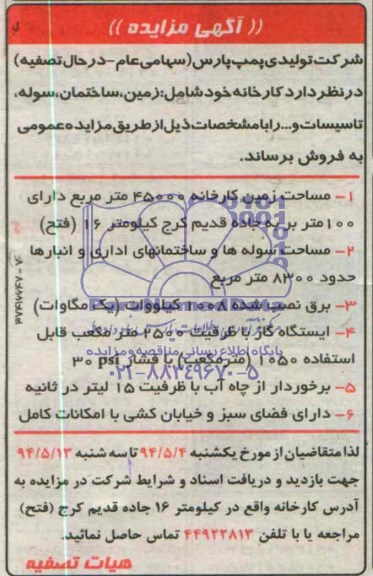 (( آگهی مزایده ))
شرکت تولیدی پمپ پارس (سهامی عام - درحال تصفیه)
درنظر دارد کارخانه خود شامل: زمین، ساختمان، سوله،
تاسیسات و... را با مشخصات ذیل از طریق مزایده عمومی
به فروش برساند.
۱- مساحت زمین کارخانه ۴۵۰۰۰ متر مربع دارای
۱۰۰متر بر به جاده قدیم کرج کیلومتر ۱۶ (فتح)
۲- مساحت سوله ها و ساختمانهای اداری و انبارها
حدود ۸۳۰۰ متر مربع
۳- برق نصب شده ۱۰۰۸ کیلووات (یک مگاوات)
۴- ایستگاه گاز با ظرفیت ۲۵۰۰ متر مکعب قابل
پایگاه اطلاع رسانی مناقصه و مزایده
استفاده ۱۰۵۰ (متر مکعب) با فشار 30 psi
۰۲۱-۸۸۳۴۹۶۷۰-۵
۵- برخوردار از چاه آب با ظرفیت ۱۵ لیتر در ثانیه
۶- دارای فضای سبز و خیابان کشی با امکانات کامل
لذا متقاضیان از مورخ یکشنبه ۹۴/۵/۴ تا سه شنبه ۹۴/۵/۱۳
جهت بازدید و دریافت اسناد و شرایط شرکت در مزایده به
آدرس کارخانه واقع در کیلومتر ۱۶ جاده قدیم کرج (فتح)
مراجعه یا با تلفن ۴۴۹۲۲۸۱۳ تماس حاصل نمائید.
هیات تصفیه